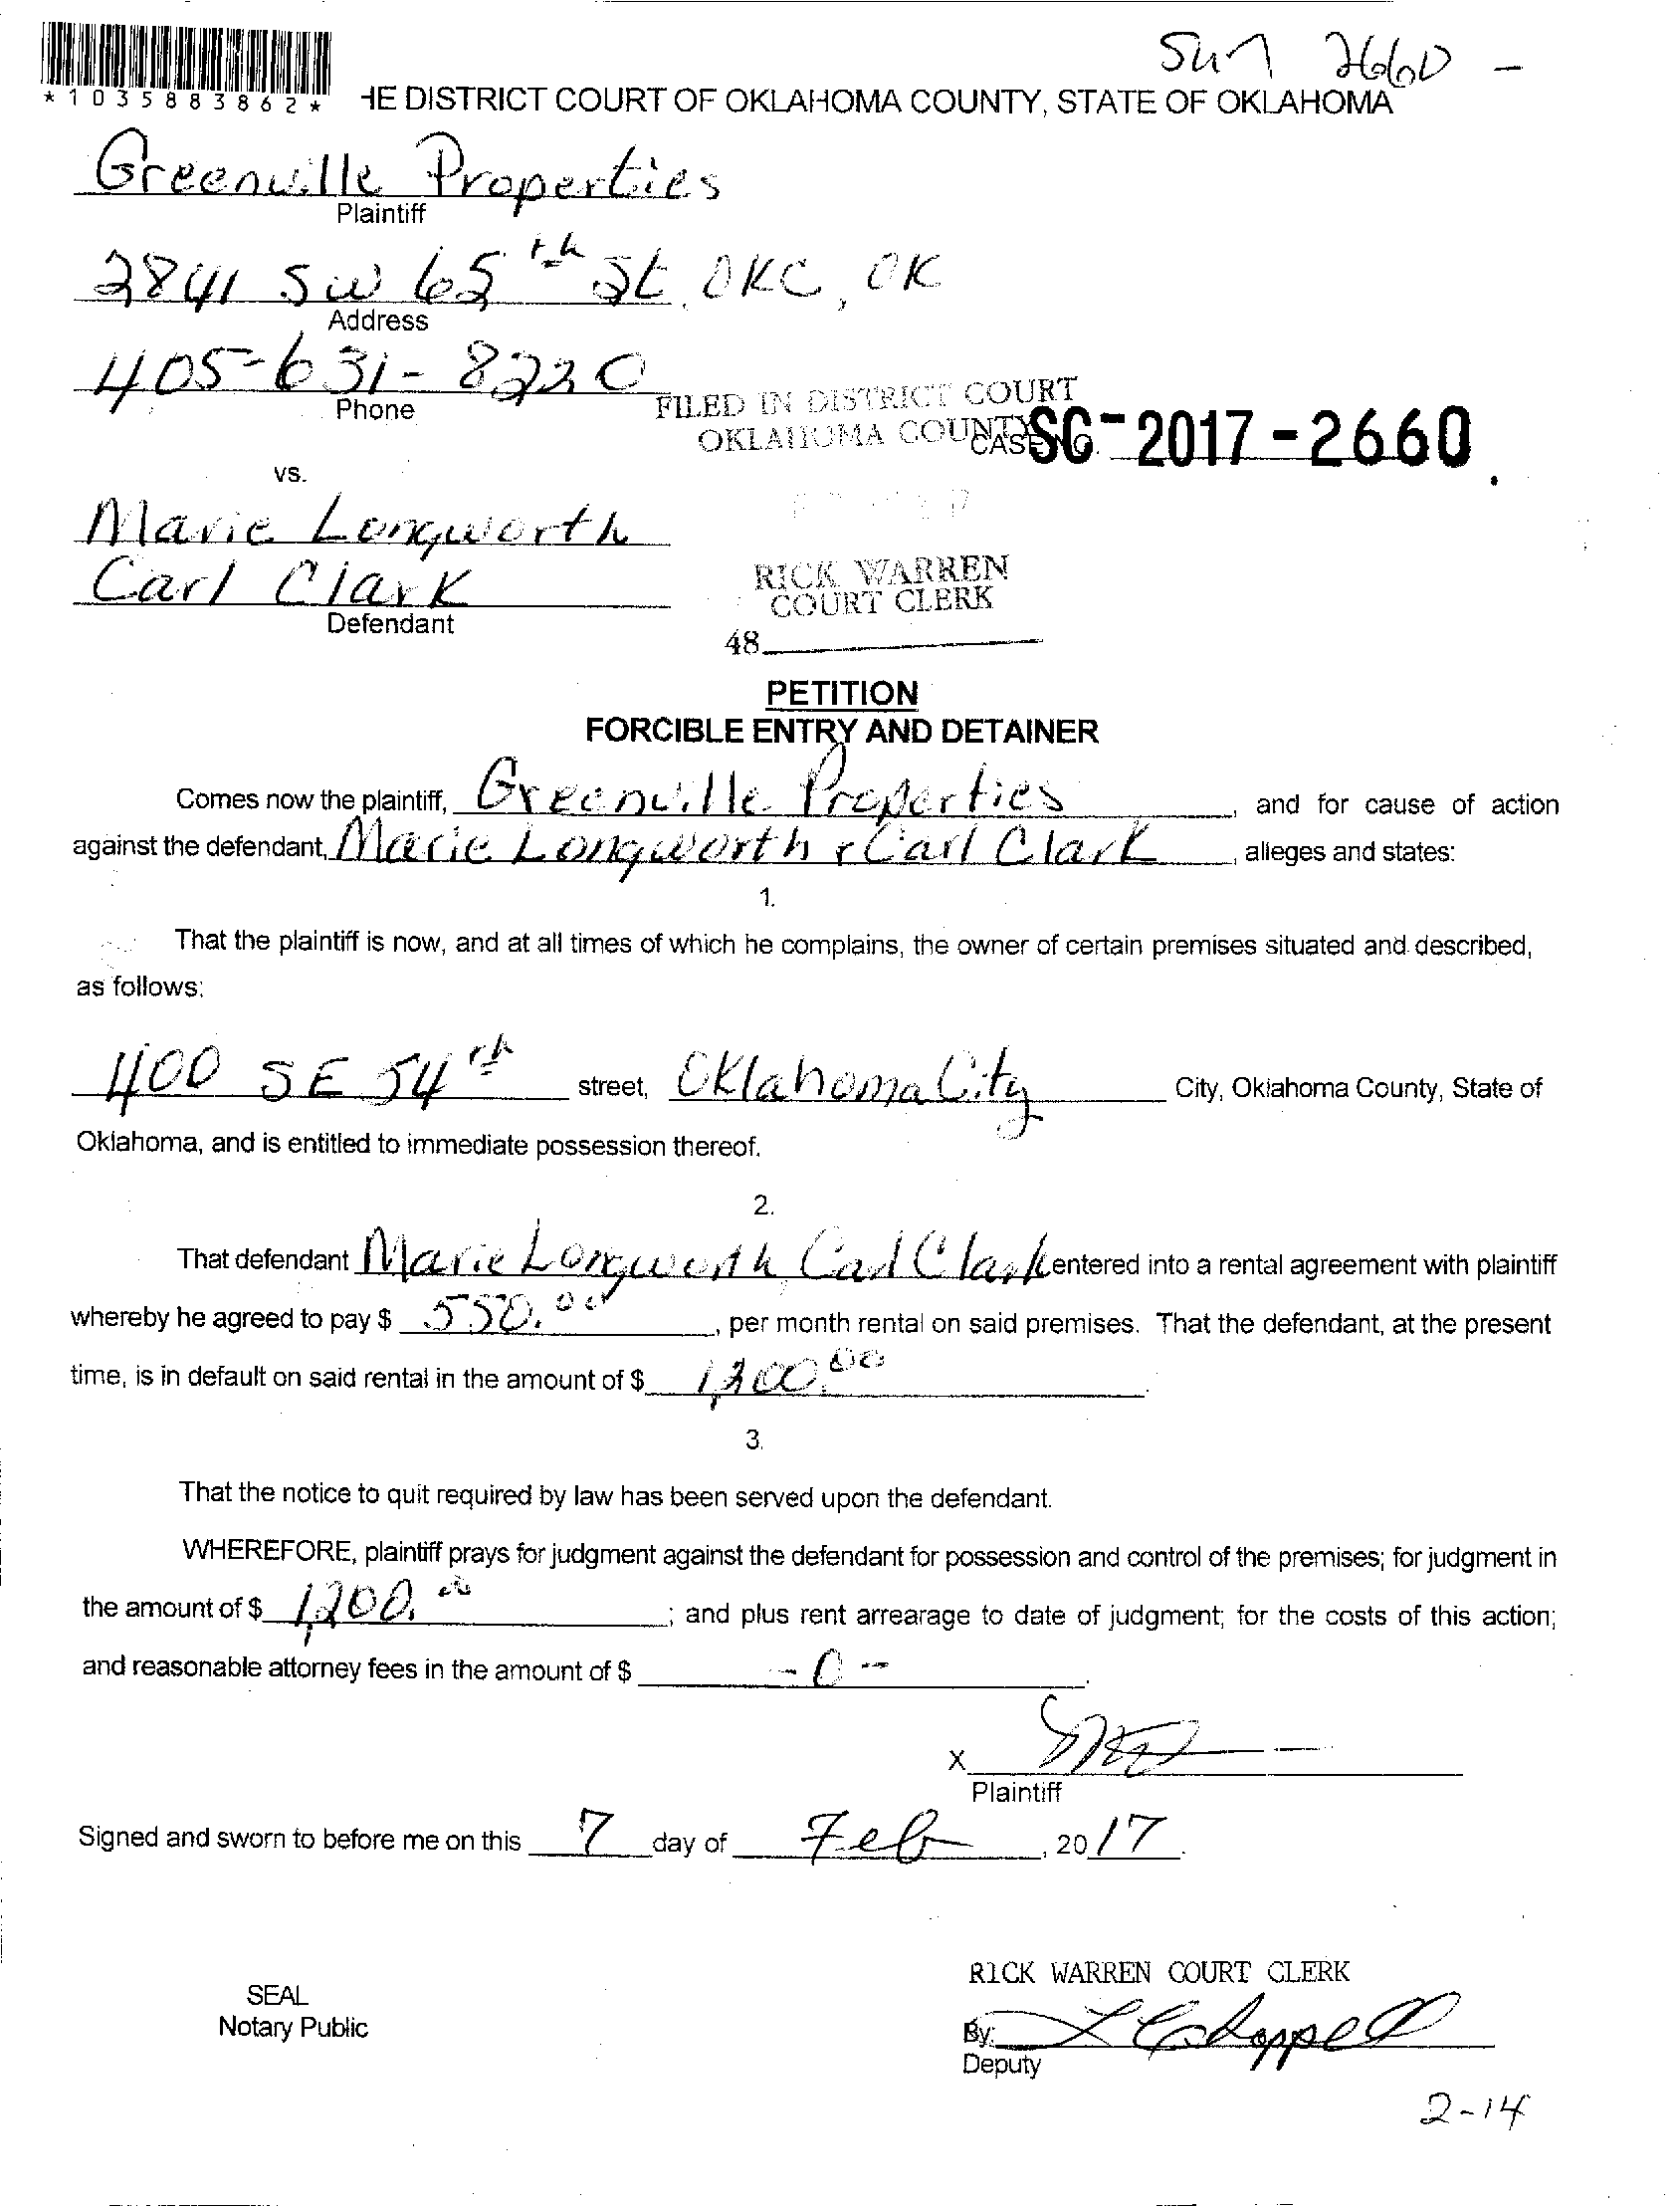 SM 2660 -
*1035883862*
HE DISTRICT COURT OF OKLAHOMA COUNTY, STATE OF OKLAHOMA
Greenville Properties
Plaintiff
2841 SW 65th St, OKC, OK
Address
405-631-8220
Phone
FILED IN DISTRICT COURT
OKLAHOMA COUNTY
CASE NO. SC-2017-2660.
vs.
Marie Longworth
Carl Clark
Defendant
RICK WARREN
COURT CLERK
48
PETITION
FORCIBLE ENTRY AND DETAINER
Comes now the plaintiff, Greenville Properties, and for cause of action
against the defendant, Marie Longworth & Carl Clark, alleges and states:
1.
That the plaintiff is now, and at all times of which he complains, the owner of certain premises situated and described,
as follows:
400 SE 54th street, Oklahoma City City, Oklahoma County, State of
Oklahoma, and is entitled to immediate possession thereof.
2.
That defendant Marie Longworth Carl Clark entered into a rental agreement with plaintiff
whereby he agreed to pay $ 550.00, per month rental on said premises. That the defendant, at the present
time, is in default on said rental in the amount of $ 1,200.00.
3.
That the notice to quit required by law has been served upon the defendant.
WHEREFORE, plaintiff prays for judgment against the defendant for possession and control of the premises; for judgment in
the amount of $ 1,200.00; and plus rent arrearage to date of judgment; for the costs of this action;
and reasonable attorney fees in the amount of $ -0-.
X
Plaintiff
Signed and sworn to before me on this 7 day of Feb, 2017.
RICK WARREN COURT CLERK
SEAL
Notary Public
By: L Chappell
Deputy
2-14